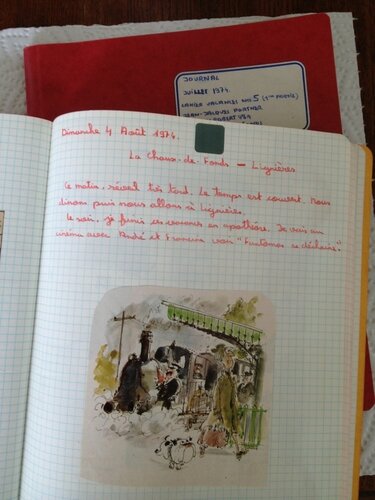 JOURNAL
JUILLET 1974
CAHIER VACANCES NO 5 (1ère PARTIE)
JEAN-JACQUES PORTNER
Dimanche 4 Août 1974.
La Chaux-de-Fonds - Lignières
Ce matin, réveil très tard. Le temps est couvert. Nous
dînons puis nous allons à Lignières.
Le soir, je finis ces vacances en apothéose. Je vais au
cinéma avec André et Francine voir "Fantomas se déchaîne".